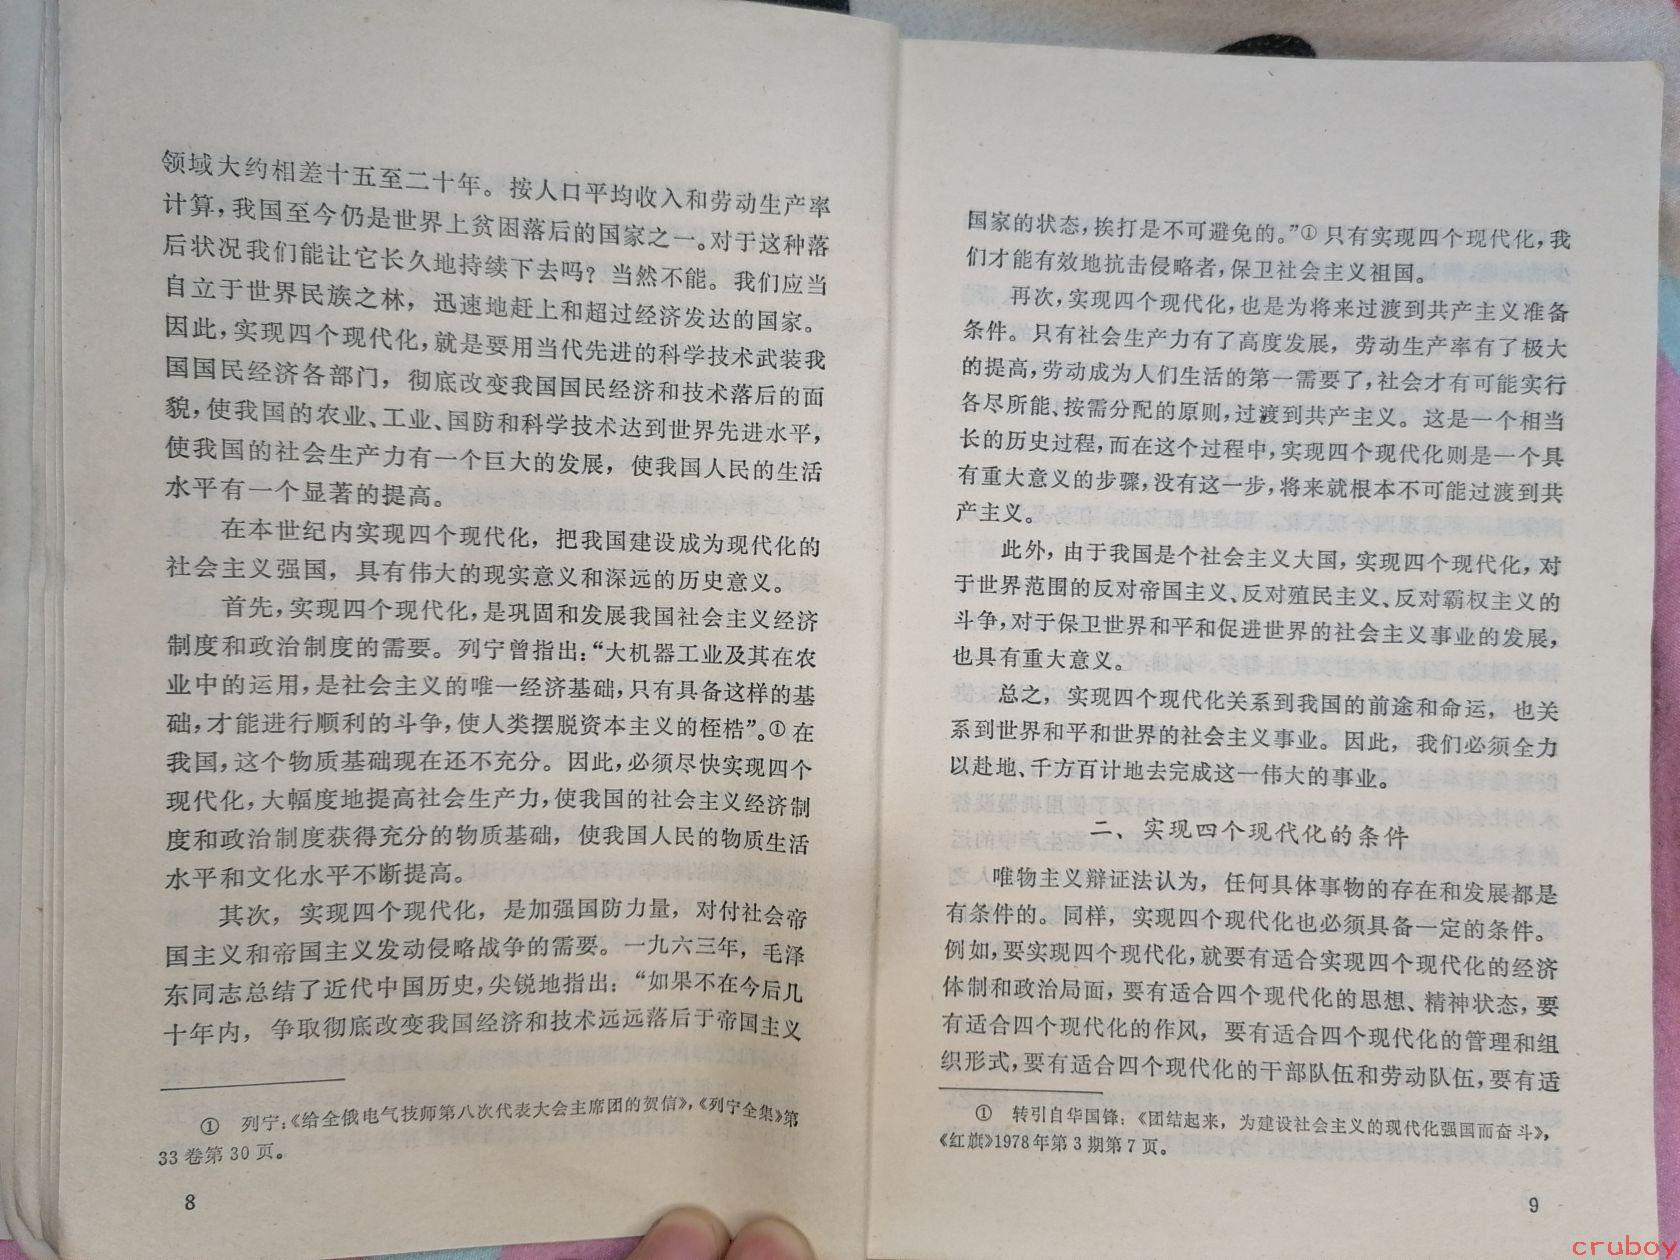 领域大约相差十五至二十年。按人口平均收入和劳动生产率
计算，我国至今仍是世界上贫困落后的国家之一。对于这种落
后状况我们能让它长久地持续下去吗？当然不能。我们应当
自立于世界民族之林，迅速地赶上和超过经济发达的国家。
因此，实现四个现代化，就是要用当代先进的科学技术武装我
国国民经济各部门，彻底改变我国国民经济和技术落后的面
貌，使我国的农业、工业、国防和科学技术达到世界先进水平，
使我国的社会生产力有一个巨大的发展，使我国人民的生活
水平有一个显著的提高。
在本世纪内实现四个现代化，把我国建设成为现代化的
社会主义强国，具有伟大的现实意义和深远的历史意义。
首先，实现四个现代化，是巩固和发展我国社会主义经济
制度和政治制度的需要。列宁曾指出：“大机器工业及其在农
业中的运用，是社会主义的唯一经济基础，只有具备这样的基
础，才能进行顺利的斗争，使人类摆脱资本主义的桎梏”。①在
我国，这个物质基础现在还不充分。因此，必须尽快实现四个
现代化，大幅度地提高社会生产力，使我国的社会主义经济制
度和政治制度获得充分的物质基础，使我国人民的物质生活
水平和文化水平不断提高。
其次，实现四个现代化，是加强国防力量，对付社会帝
国主义和帝国主义发动侵略战争的需要。一九六三年，毛泽
东同志总结了近代中国历史，尖锐地指出：“如果不在今后几
十年内，争取彻底改变我国经济和技术远远落后于帝国主义
① 列宁：《给全俄电气技师第八次代表大会主席团的贺信》，《列宁全集》第
33卷第30页。
8
国家的状态，挨打是不可避免的。”①只有实现四个现代化，我
们才能有效地抗击侵略者，保卫社会主义祖国。
再次，实现四个现代化，也是为将来过渡到共产主义准备
条件。只有社会生产力有了高度发展，劳动生产率有了极大
的提高，劳动成为人们生活的第一需要了，社会才有可能实行
各尽所能、按需分配的原则，过渡到共产主义。这是一个相当
长的历史过程，而在这个过程中，实现四个现代化则是一个具
有重大意义的步骤，没有这一步，将来就根本不可能过渡到共
产主义。
此外，由于我国是个社会主义大国，实现四个现代化，对
于世界范围的反对帝国主义、反对殖民主义、反对霸权主义的
斗争，对于保卫世界和平和促进世界的社会主义事业的发展，
也具有重大意义。
总之，实现四个现代化关系到我国的前途和命运，也关
系到世界和平和世界的社会主义事业。因此，我们必须全力
以赴地、千方百计地去完成这一伟大的事业。
二、实现四个现代化的条件
唯物主义辩证法认为，任何具体事物的存在和发展都是
有条件的。同样，实现四个现代化也必须具备一定的条件。
例如，要实现四个现代化，就要有适合实现四个现代化的经济
体制和政治局面，要有适合四个现代化的思想、精神状态，要
有适合四个现代化的作风，要有适合四个现代化的管理和组
织形式，要有适合四个现代化的干部队伍和劳动队伍，要有适
① 转引自华国锋：《团结起来，为建设社会主义的现代化强国而奋斗》，
《红旗》1978年第3期第7页。
9
cruboy